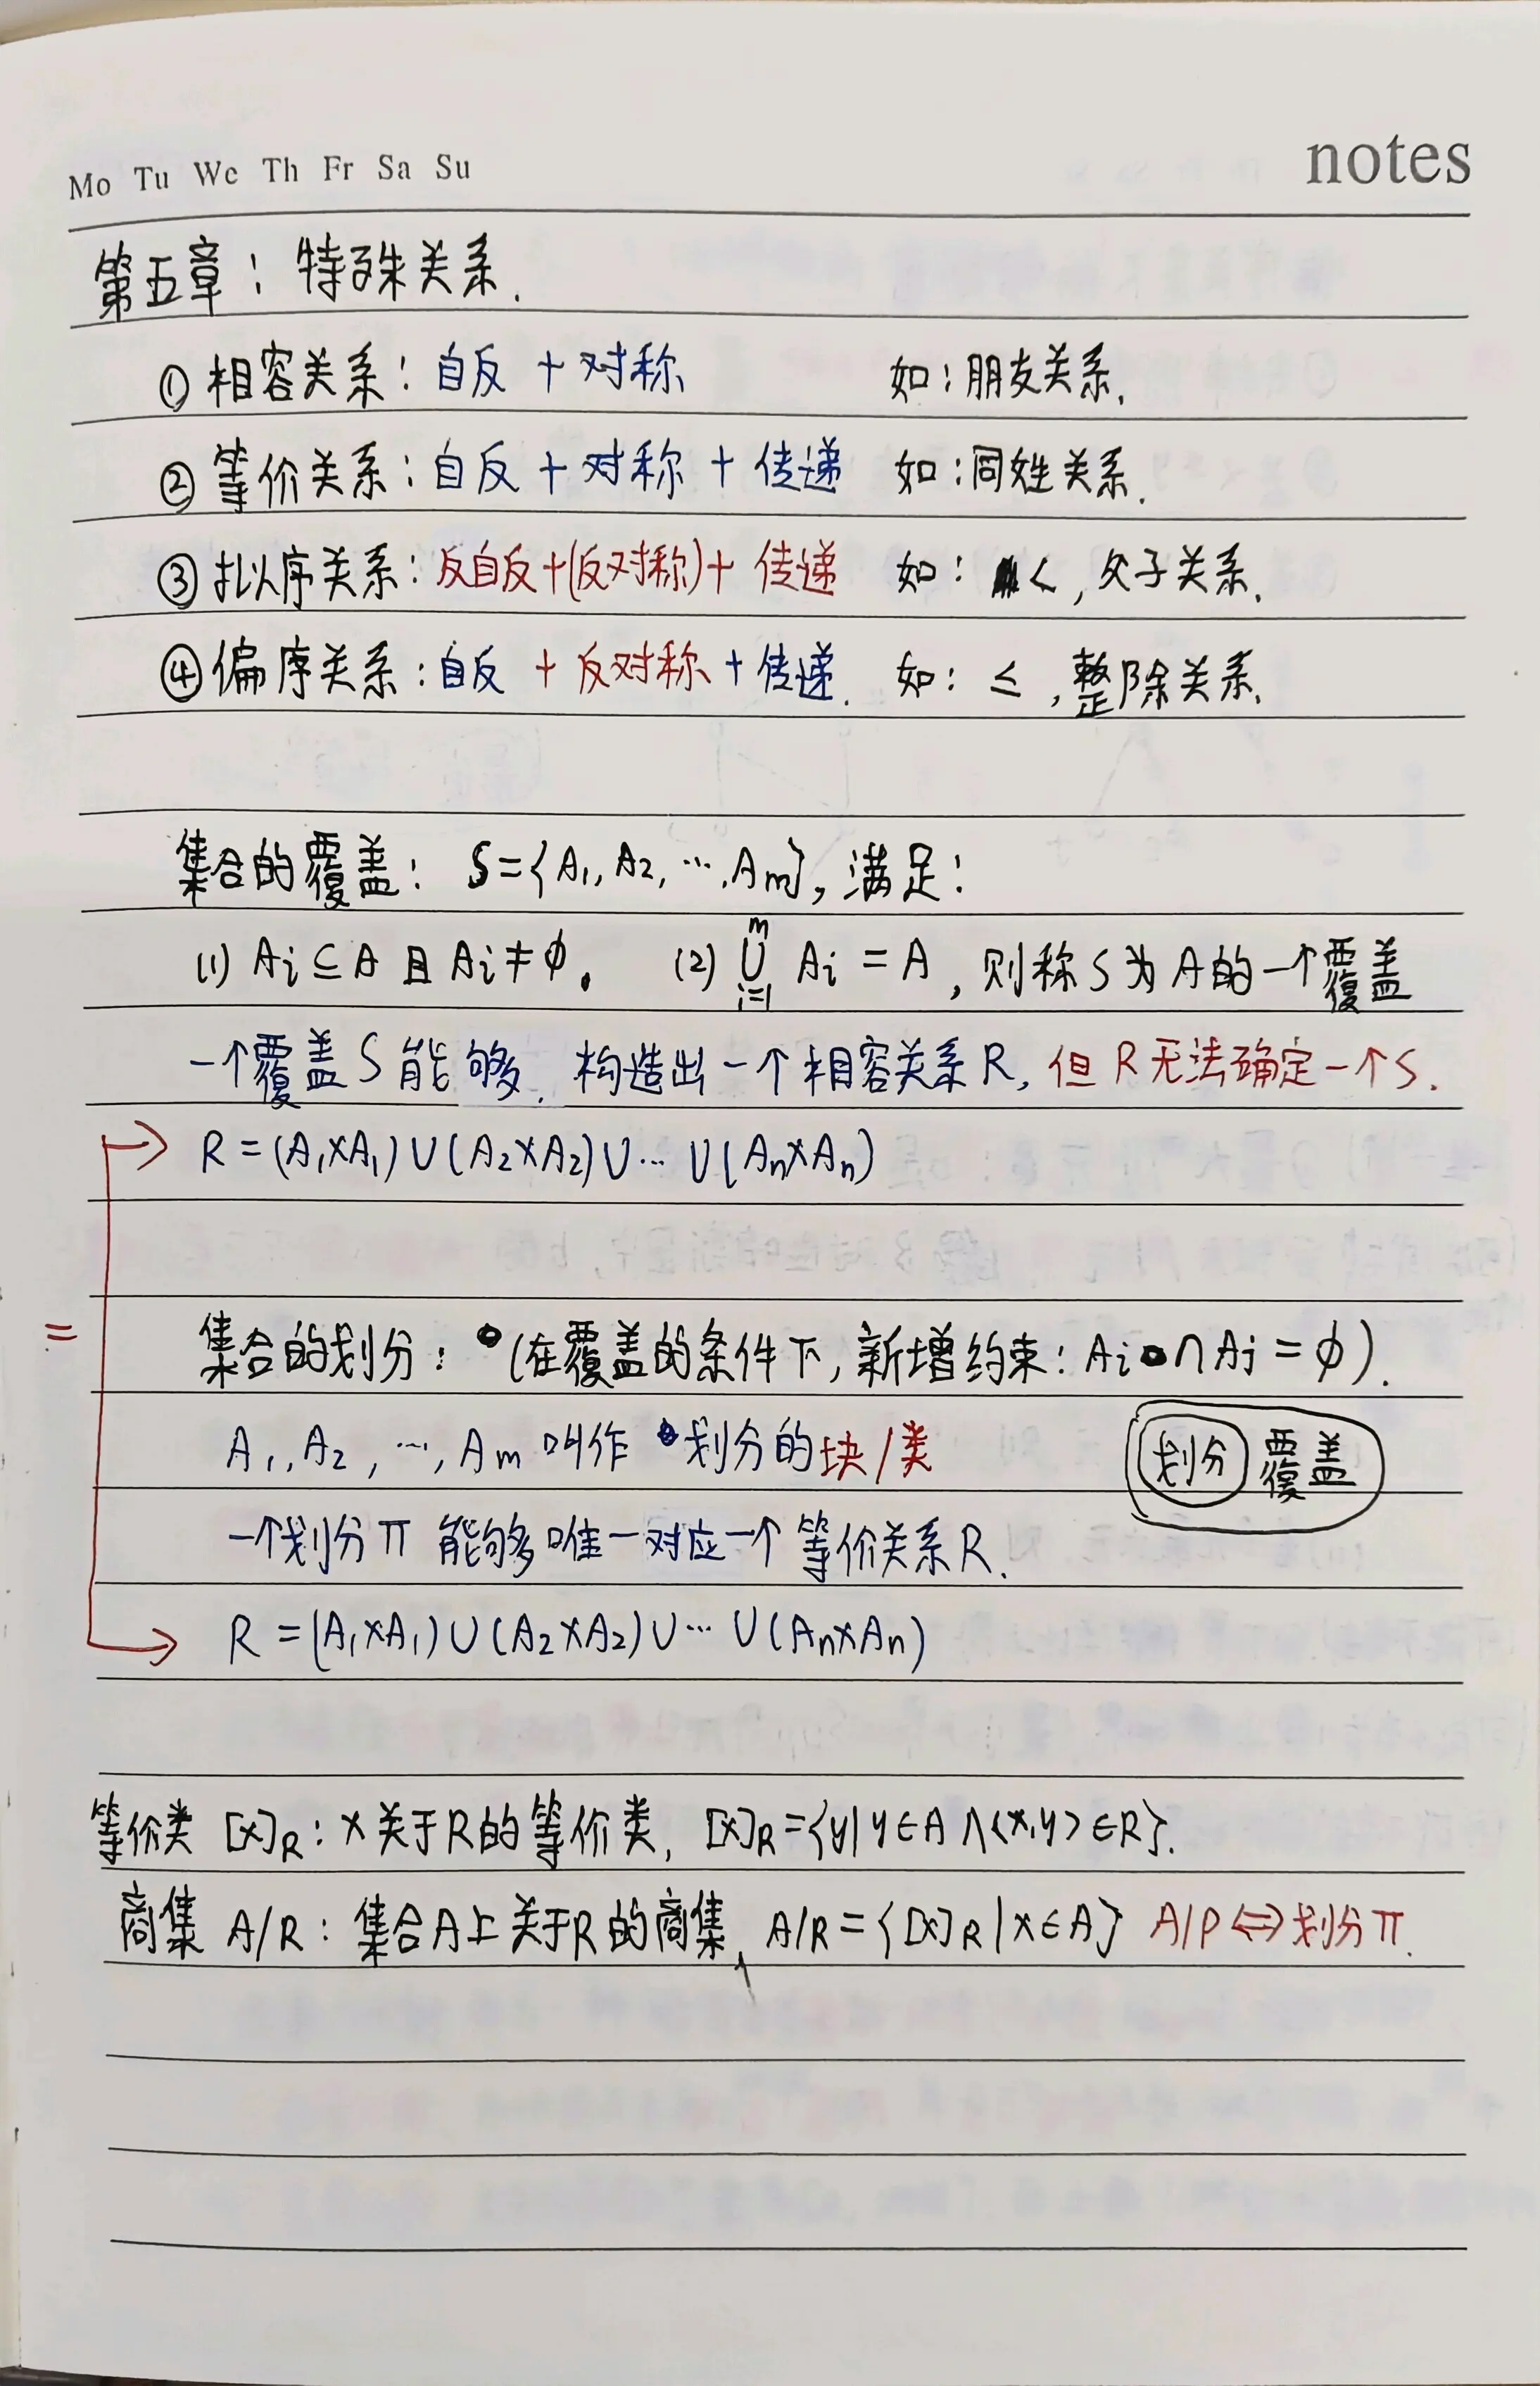 Mo Tu We Th Fr Sa Su
notes
第五章：特殊关系.
① 相容关系：自反 + 对称 如：朋友关系.
② 等价关系：自反 + 对称 + 传递 如：同姓关系.
③ 拟序关系：反自反+(反对称)+ 传递 如： <，父子关系.
④ 偏序关系：自反 + 反对称 + 传递. 如： ≤ ，整除关系.
集合的覆盖： S={A₁, A₂, …, Aₘ}，满足：
(1) Aᵢ⊆A 且 Aᵢ≠ϕ。 (2) ⋃ᵢ₌₁ᵐ Aᵢ = A，则称 S 为 A 的一个覆盖
一个覆盖 S 能够. 构造出一个相容关系 R, 但 R 无法确定一个 S.
R = (A₁×A₁)∪(A₂×A₂)∪…∪(Aₙ×Aₙ)
=
集合的划分： (在覆盖的条件下, 新增约束：Aᵢ∩Aⱼ = ϕ).
A₁, A₂, …, Aₘ 叫作 划分的块/类
划分 覆盖
一个划分 π 能够唯一对应一个等价关系 R.
R = (A₁×A₁)∪(A₂×A₂)∪…∪(Aₙ×Aₙ)
等价类 [x]ᵣ：x 关于 R 的等价类, [x]ᵣ={y| y∈A ∧<x,y>∈R}.
商集 A/R：集合A上关于R的商集, A/R={[x]ᵣ|x∈A} A/P⇔划分 π.